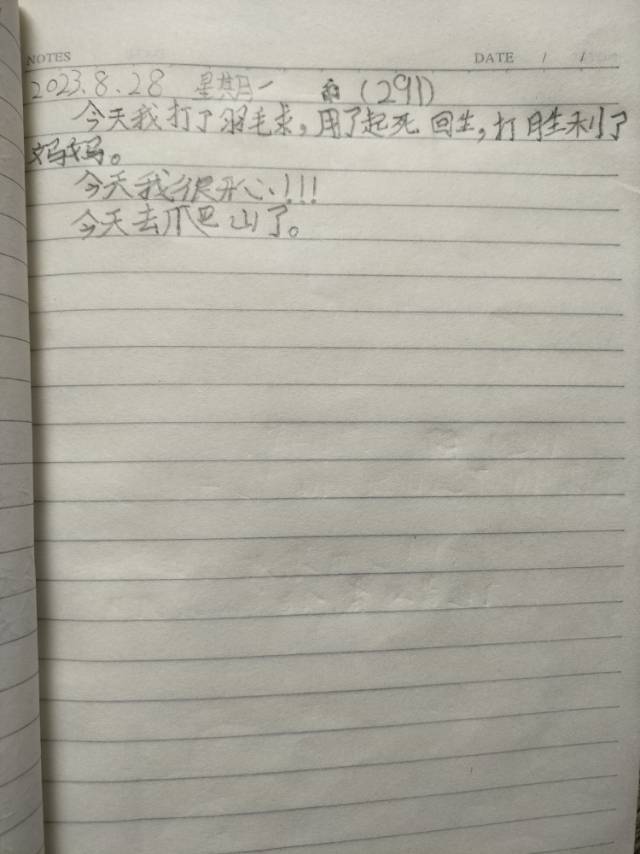 NOTES DATE / /
2023.8.28 星期一 (291)
今天我打了羽毛求，用了起死回生，打胜利了
妈妈。
今天我很开心！！！
今天去爬山了。